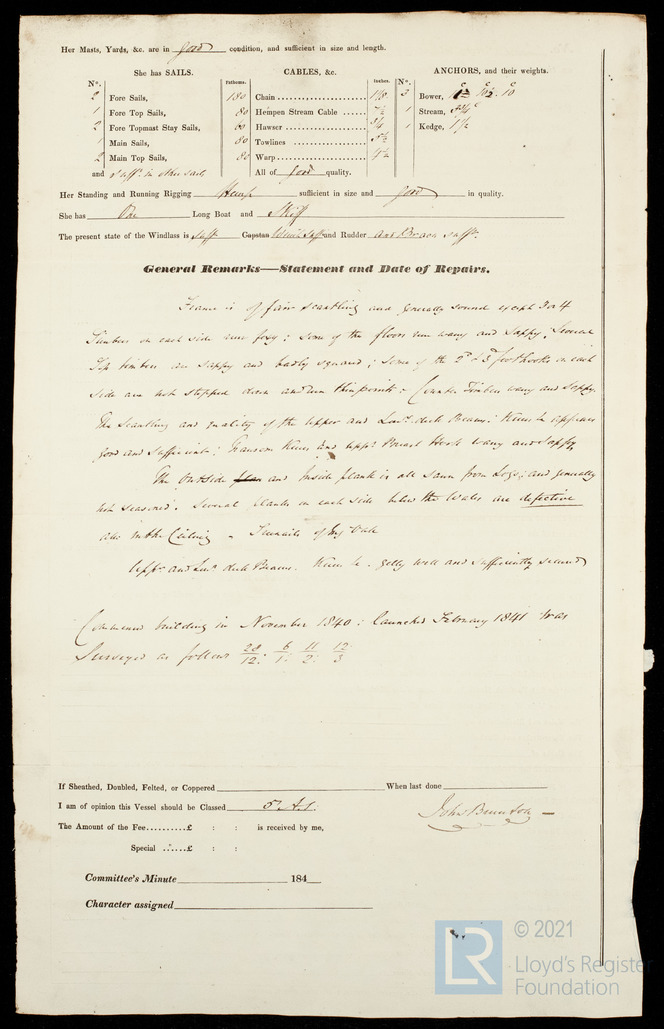 Her Masts, Yards, &c. are in good condition, and sufficient in size and length.
She has SAILS. CABLES, &c. ANCHORS, and their weights.
N°. Fathoms. Inches. N°.
2 Fore Sails, 180 Chain 1 1/8 2 Bower,
1 Fore Top Sails, 80 Hempen Stream Cable 7 1/2 1 Stream,
2 Fore Topmast Stay Sails, 60 Hawser 1 Kedge, 1 1/2
1 Main Sails, 80 Towlines 5 1/2
2 Main Top Sails, 80 Warp 4 1/2
and suff.t in other sails All of good quality.
Her Standing and Running Rigging Hemp sufficient in size and good in quality.
She has One Long Boat and Skiff
The present state of the Windlass is Suff Capstan Winch Suff and Rudder and Braces Suff.t
General Remarks—Statement and Date of Repairs.
Frame is of fair scantling and generally sound except 3 or 4
Timbers on each side are foxy: some of the floors are wany and sappy; several
Top timbers are sappy and badly squared; some of the 2d & 3d foothooks on each
side are not stepped down and are thin points: Counter Timbers wany and sappy.
The scantling and quality of the upper and Lowr. deck Beams: Knees &c appears
good and sufficient; Transom Knees and uppr. Breast Hook wany and sappy
The Outside plan and Inside plank is all sawn from Logs; and generally
not seasoned. Several planks on each side below the Wales are defective
also in the Ceiling - Treenails of Eng Oak
Uppr. and Lowr. deck Beams. Knees &c. gelly well and sufficiently secured
Commenced building in November 1840: launched February 1841 was
Surveyed as follows 28/12: 6/1: 11/2: 12/3
If Sheathed, Doubled, Felted, or Coppered When last done
I am of opinion this Vessel should be Classed 5 A.1.
John Brunton
The Amount of the Fee..........£ : : is received by me,
Special ......£ : :
Committee's Minute 184
Character assigned
LR © 2021
Lloyd's Register
Foundation